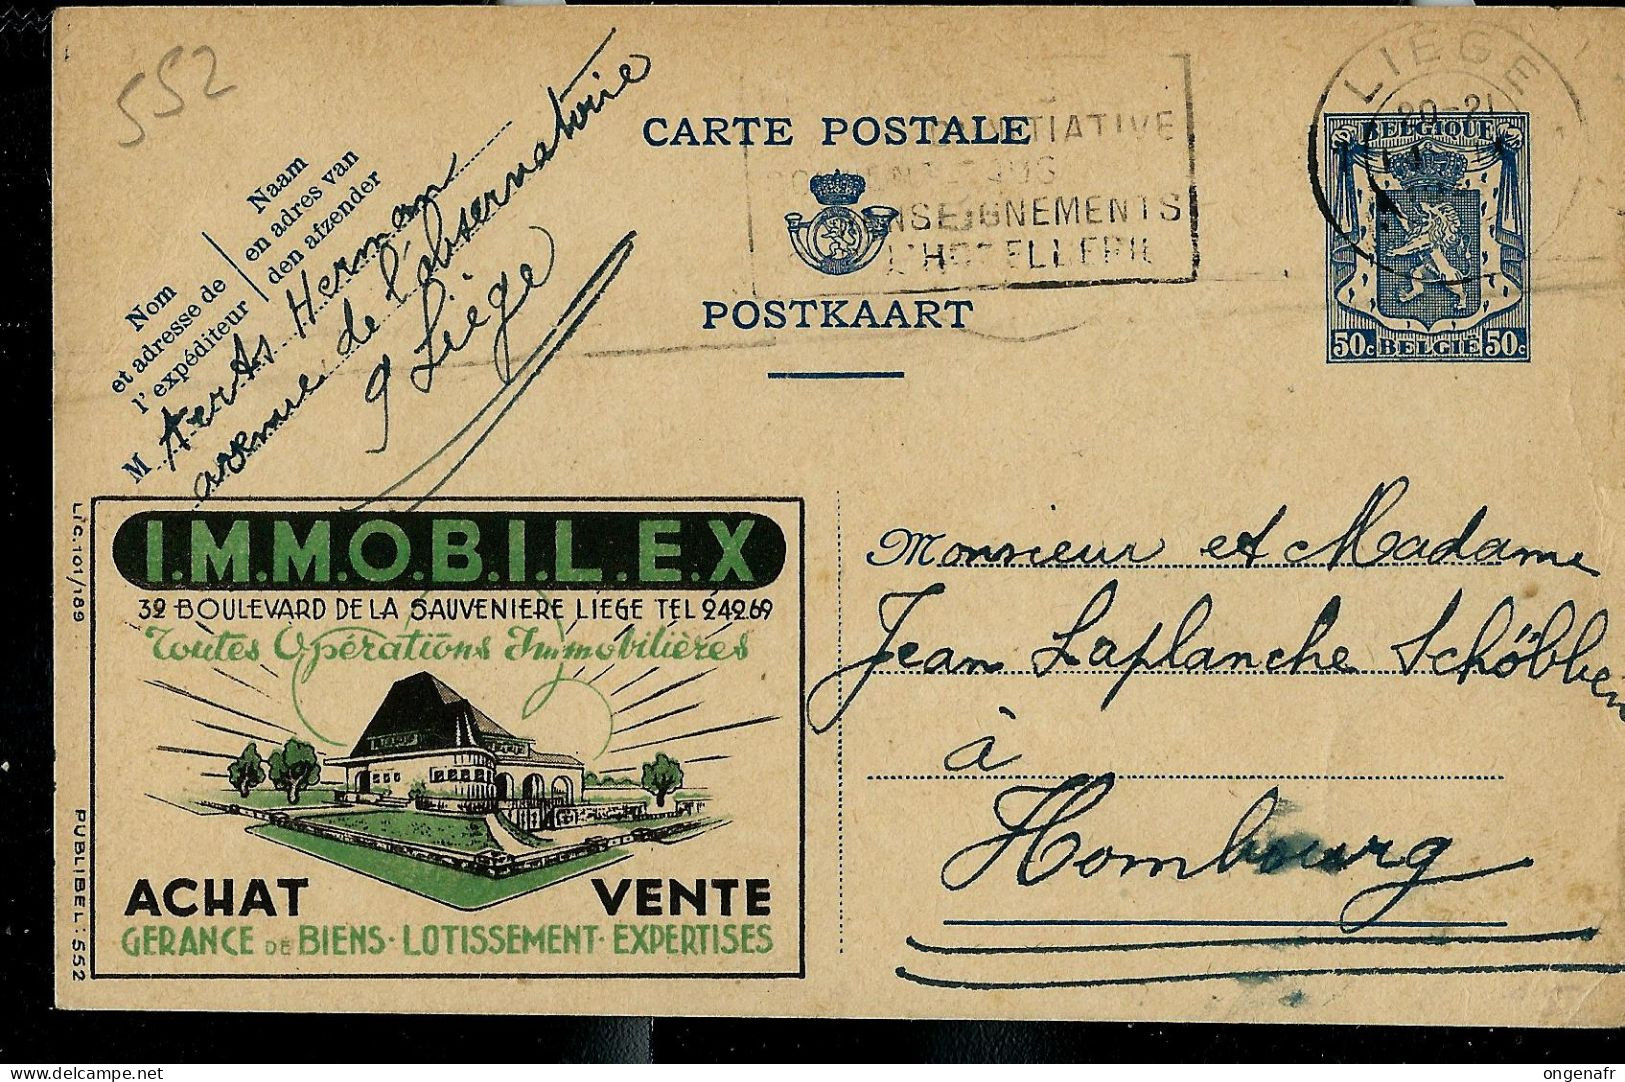 552
CARTE POSTALE
POSTKAART
LIEGE
20-21
BELGIQUE
50c BELGIË 50c
INITIATIVE
L'HOTELLERIE
Naam
en adres van
den afzender
Nom
et adresse de
l'expéditeur
M Aerts Herman
avenue de l'observatoire
9 Liège
I.M.M.O.B.I.L.E.X
32 BOULEVARD DE LA SAUVENIERE LIEGE TEL 24269
Toutes Opérations Immobilières
ACHAT VENTE
GERANCE DE BIENS · LOTISSEMENT · EXPERTISES
LIC. 101/189
PUBLIBEL: 552
Monsieur et Madame
Jean Laplanche Schöbben
à
Hombourg
ongenafr